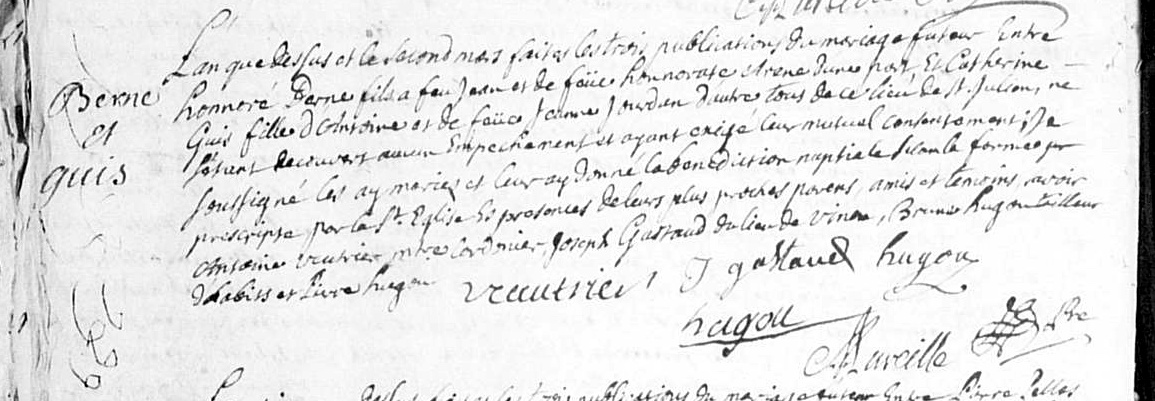 L'an que dessus et le second mars faites les trois publications du mariage futeur Entre
honnoré Berne fils a feu Jean et de feüe honnorate Arene d'une part Et Catherine
Guis fille d'Antoine et de feüe Jeanne Jourdan d'autre tous de ce lieu de St Julien, ne
s'etant decouvert aucun Empechement et ayant exigé leur mutuel consentement, Je
soussigné les ay mariés et leur ay donné la benediction nuptiale selon la forme
prescripte par la Ste Eglise Es presences de leurs plus proches parens, amis et temoins, avoir
Antoine veutrier mtre Cordonier Joseph Gastaud du lieu de vinon, Brune hugou tailleur
d'habits et Pierre hugou
Berne
et
guis
veautrier J gastaud hugou
hugou
Mareille Ptre
dessus faites les trois publications du mariage futeur Entre Pierre